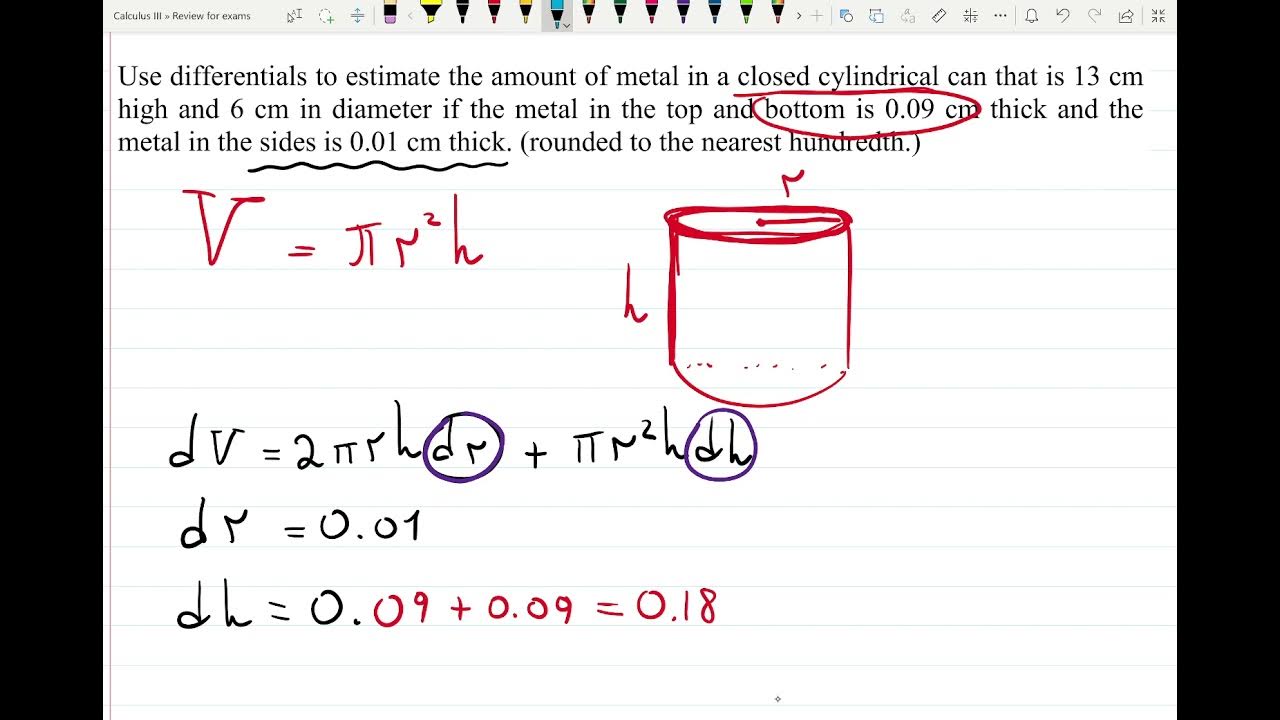 Calculus III » Review for exams
Use differentials to estimate the amount of metal in a closed cylindrical can that is 13 cm
high and 6 cm in diameter if the metal in the top and bottom is 0.09 cm thick and the
metal in the sides is 0.01 cm thick. (rounded to the nearest hundredth.)
r
V = πr²h
h
dV = 2πrh dr + πr²h dh
dr = 0.01
dh = 0.09 + 0.09 = 0.18